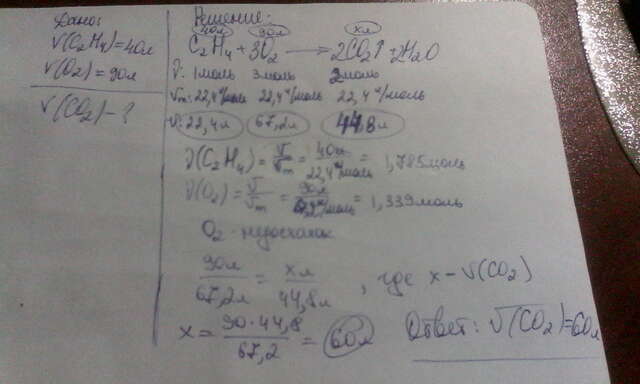 Дано:
V(C2H4)=40л
V(O2)=90л
V(CO2)-?
Решение:
40л 90л xл
C2H4+3O2 → 2CO2↑+2H2O
ν: 1моль 3моль 2моль
Vm: 22,4л/моль 22,4л/моль 22,4л/моль
V: 22,4л 67,2л 44,8л
ν(C2H4)=V/Vm=40л/22,4л/моль=1,785моль
ν(O2)=V/Vm=90л/моль=1,339моль
O2-недостаток
90л/67,2л=xл/44,8л, где x-V(CO2)
x=90·44,8/67,2=60л
Ответ: V(CO2)=60л